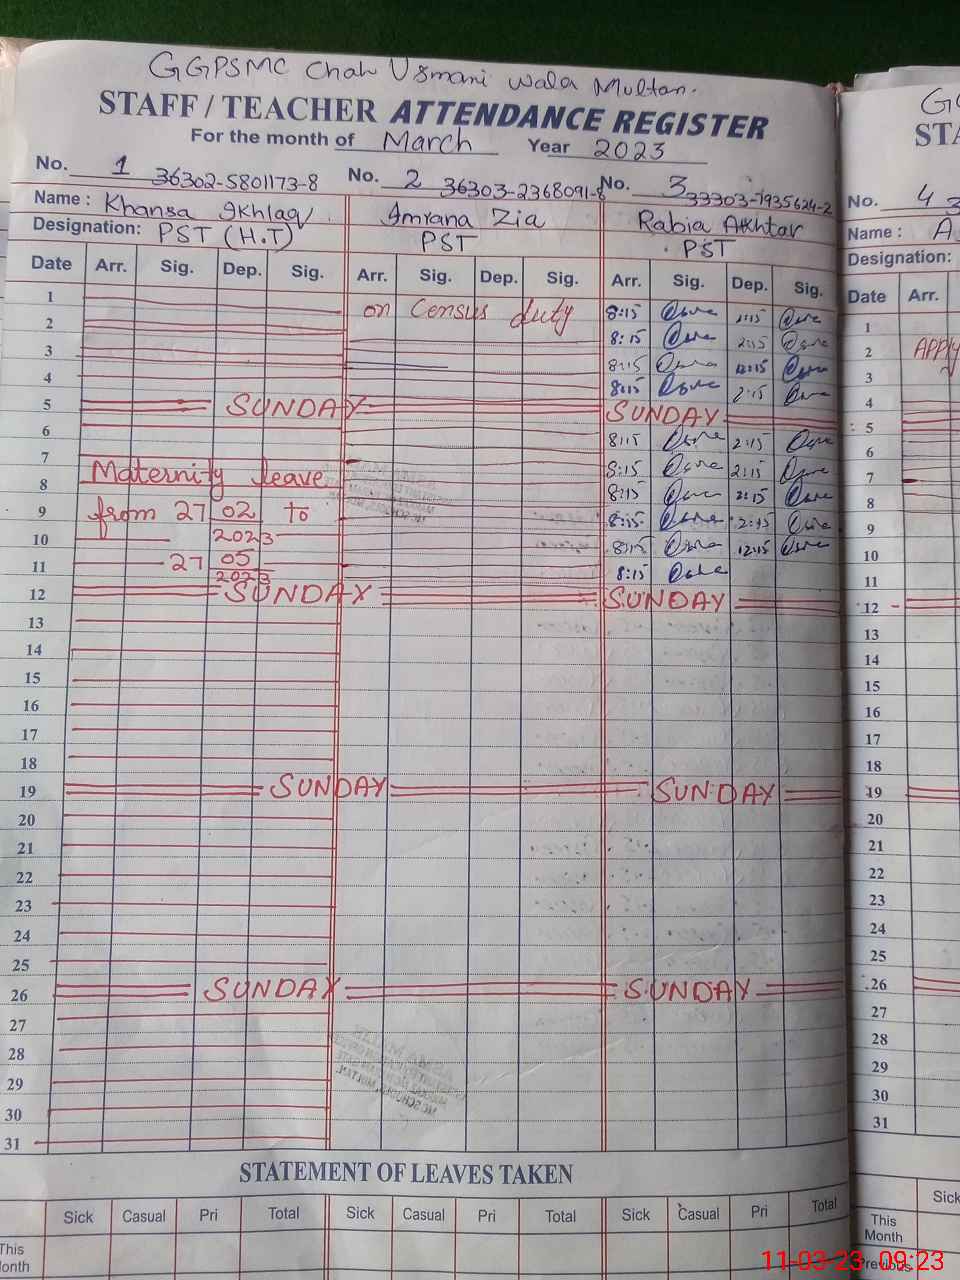 GGPSMC Chah Usmani Wala Multan.
STAFF / TEACHER ATTENDANCE REGISTER
For the month of March Year 2023
No. 1 36302-5801173-8 No. 2 36303-2368091-8 No. 3 33303-7935624-2
Name : Khansa Ikhlaq Imrana Zia Rabia Akhtar
Designation: PST (H.T) PST PST
Date Arr. Sig. Dep. Sig. Arr. Sig. Dep. Sig. Arr. Sig. Dep. Sig.
1 on Census duty 8:15
2 8:15 2:15
3 8:15 12:15
4 8:15 2:15
5 SUNDAY SUNDAY
6 8:15 2:15
7 8:15 2:15
8 Maternity leave 8:15 2:15
9 from 27 02 to 8:15 2:15
10 2023 8:15 12:15
11 27 05 8:15
2023
12 SUNDAY SUNDAY
13
14
15
16
17
18
19 SUNDAY SUNDAY
20
21
22
23
24
25
26 SUNDAY SUNDAY
27
28
29
30
31
STATEMENT OF LEAVES TAKEN
Sick Casual Pri Total Sick Casual Pri Total Sick Casual Pri Total
This
Month
No. 4
Name : A
Designation:
Date Arr.
1
2 APPly
3
4
5
6
7
8
9
10
11
12
13
14
15
16
17
18
19
20
21
22
23
24
25
26
27
28
29
30
31
Sick
This
Month
Previous
11-03-23 09:23